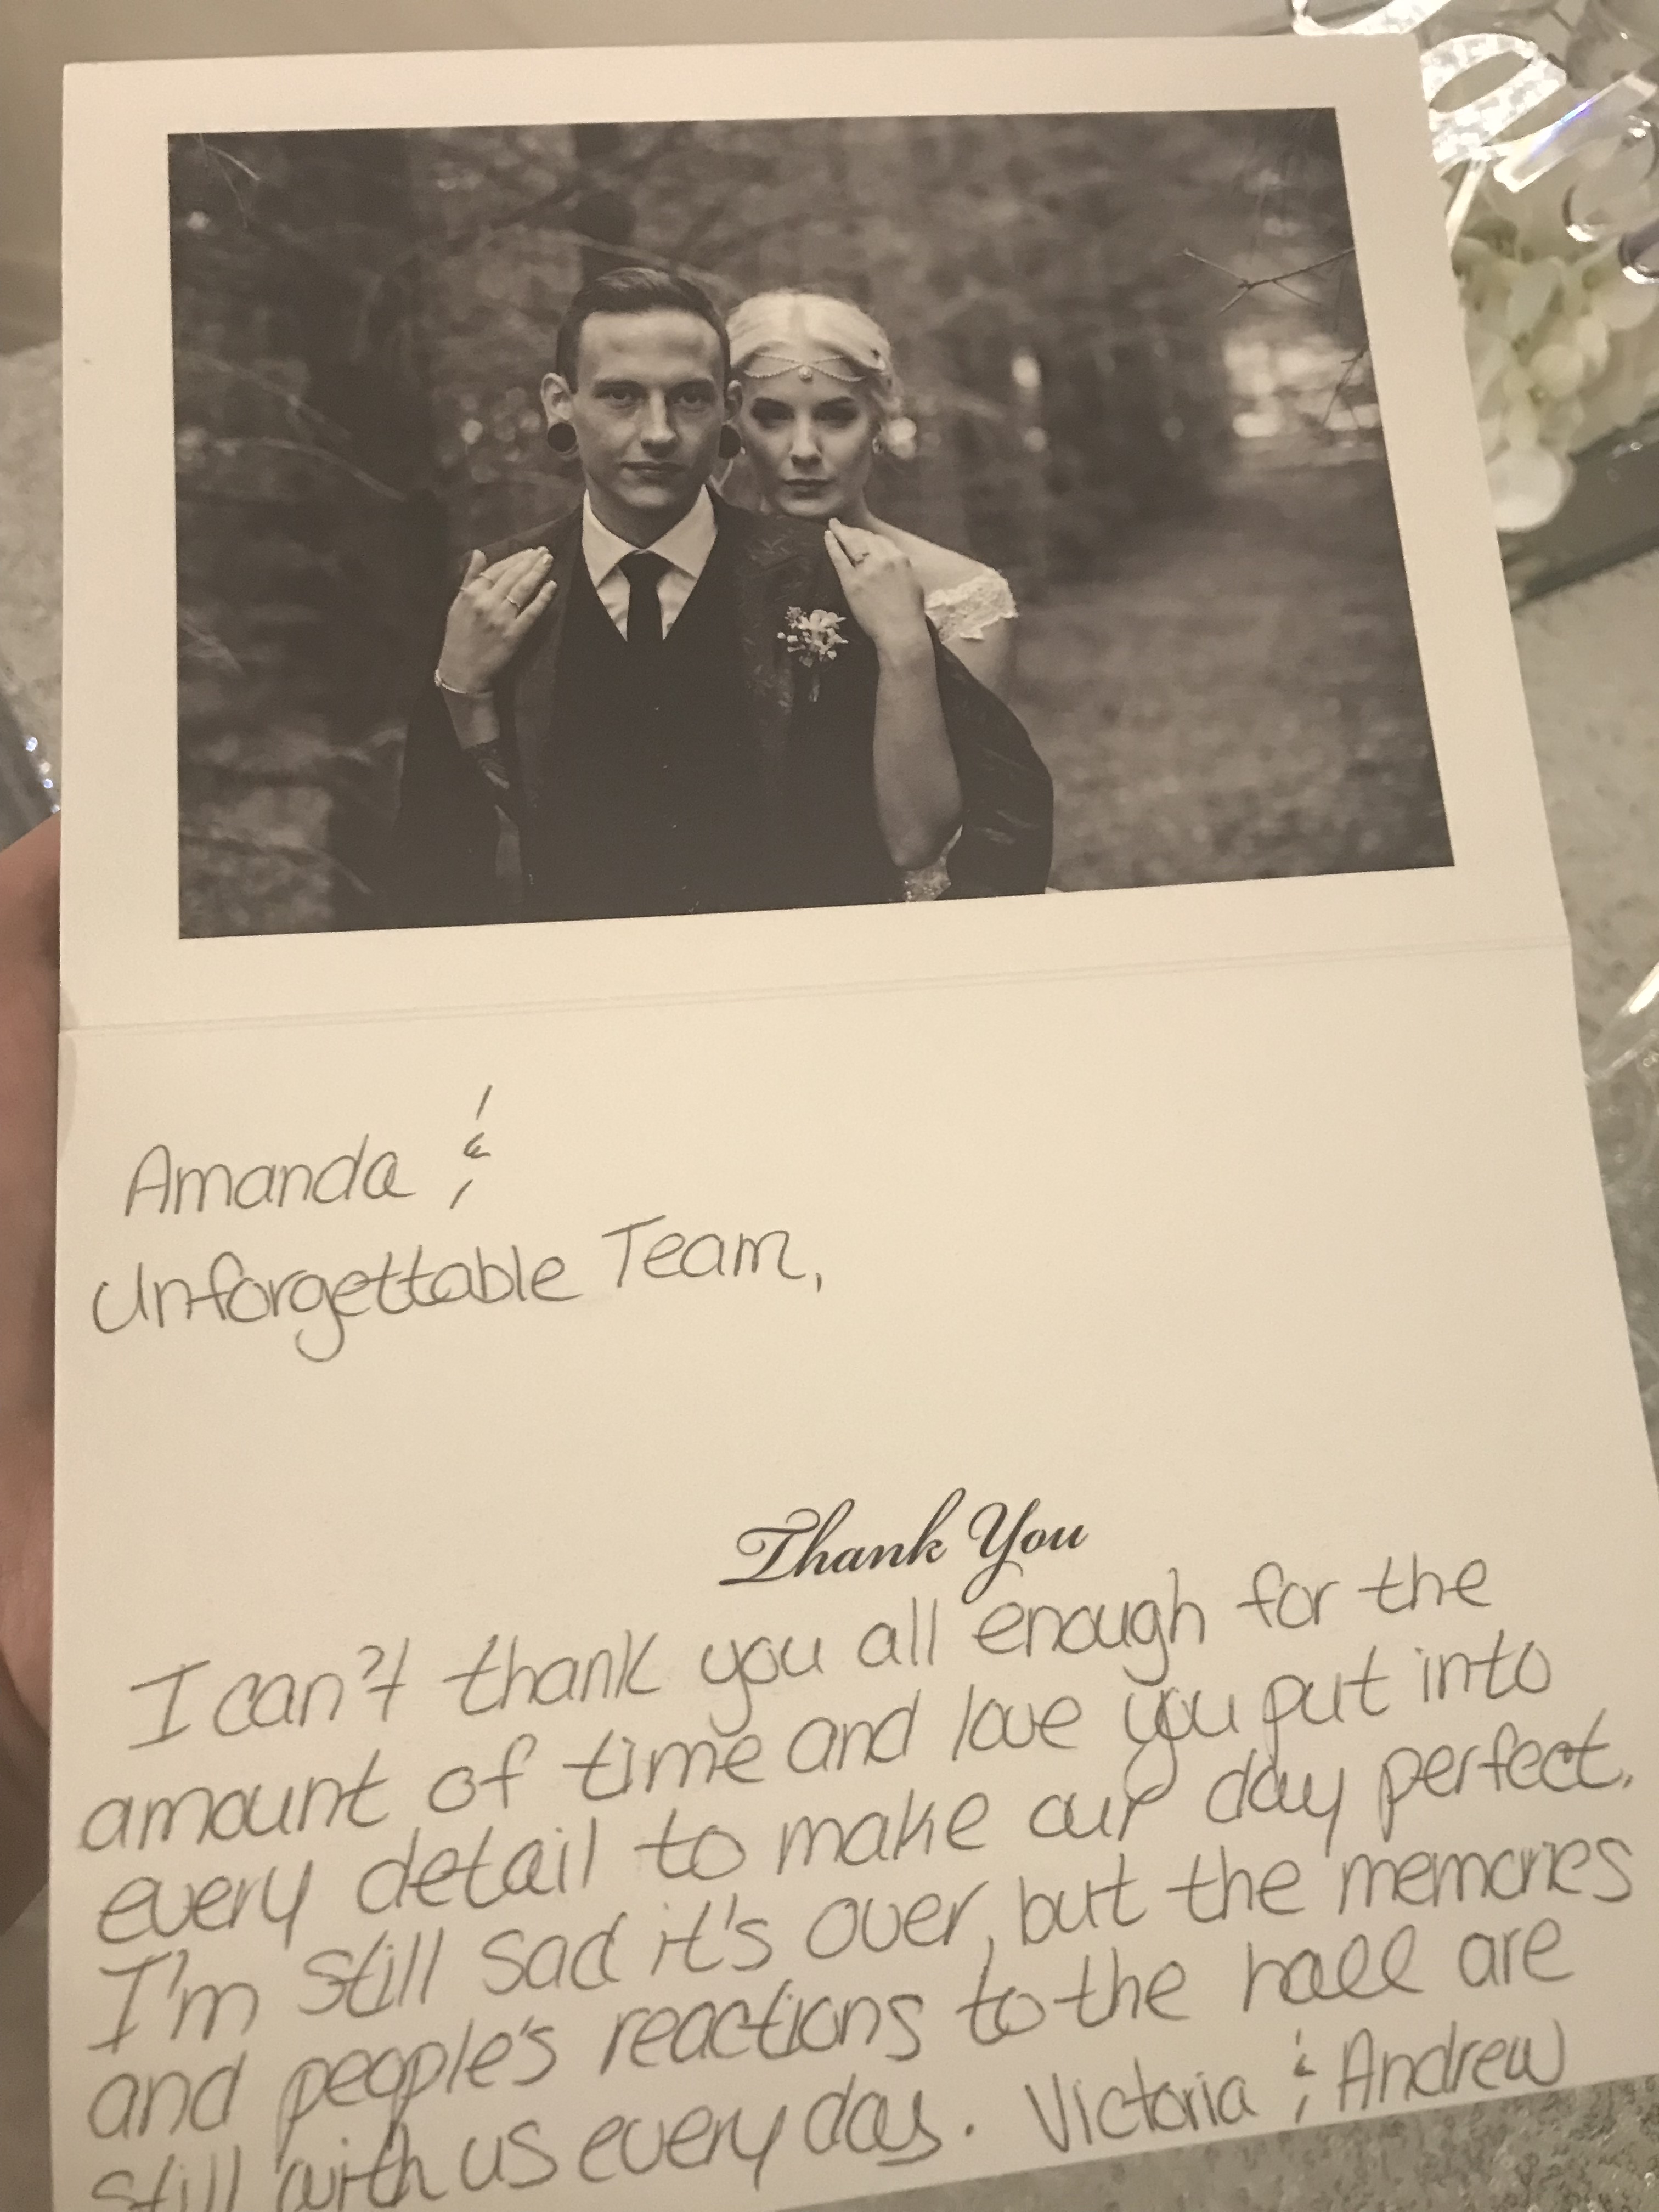 Amanda &
Unforgettable Team,
Thank You
I can't thank you all enough for the
amount of time and love you put into
every detail to make our day perfect.
I'm still sad it's over, but the memories
and people's reactions to the hall are
still with us every day. Victoria & Andrew